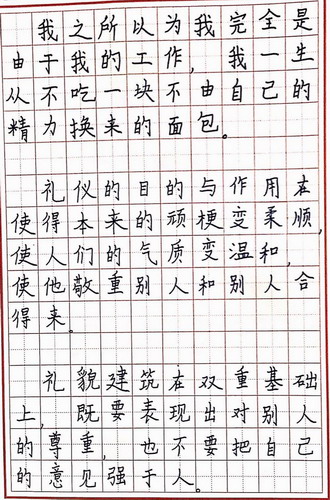 我之所以为我完全是
由于我的工作,我一生
从不吃一块不由自己的
精力换来的面包。
礼仪的目的与作用本
使得本来的顽梗变柔顺,
使人们的气质变温和,
使他敬重别人和别人合
得来。
礼貌建筑在双重基础
上,既要表现出对别人
的尊重,也不要把自己
的意见强于人。